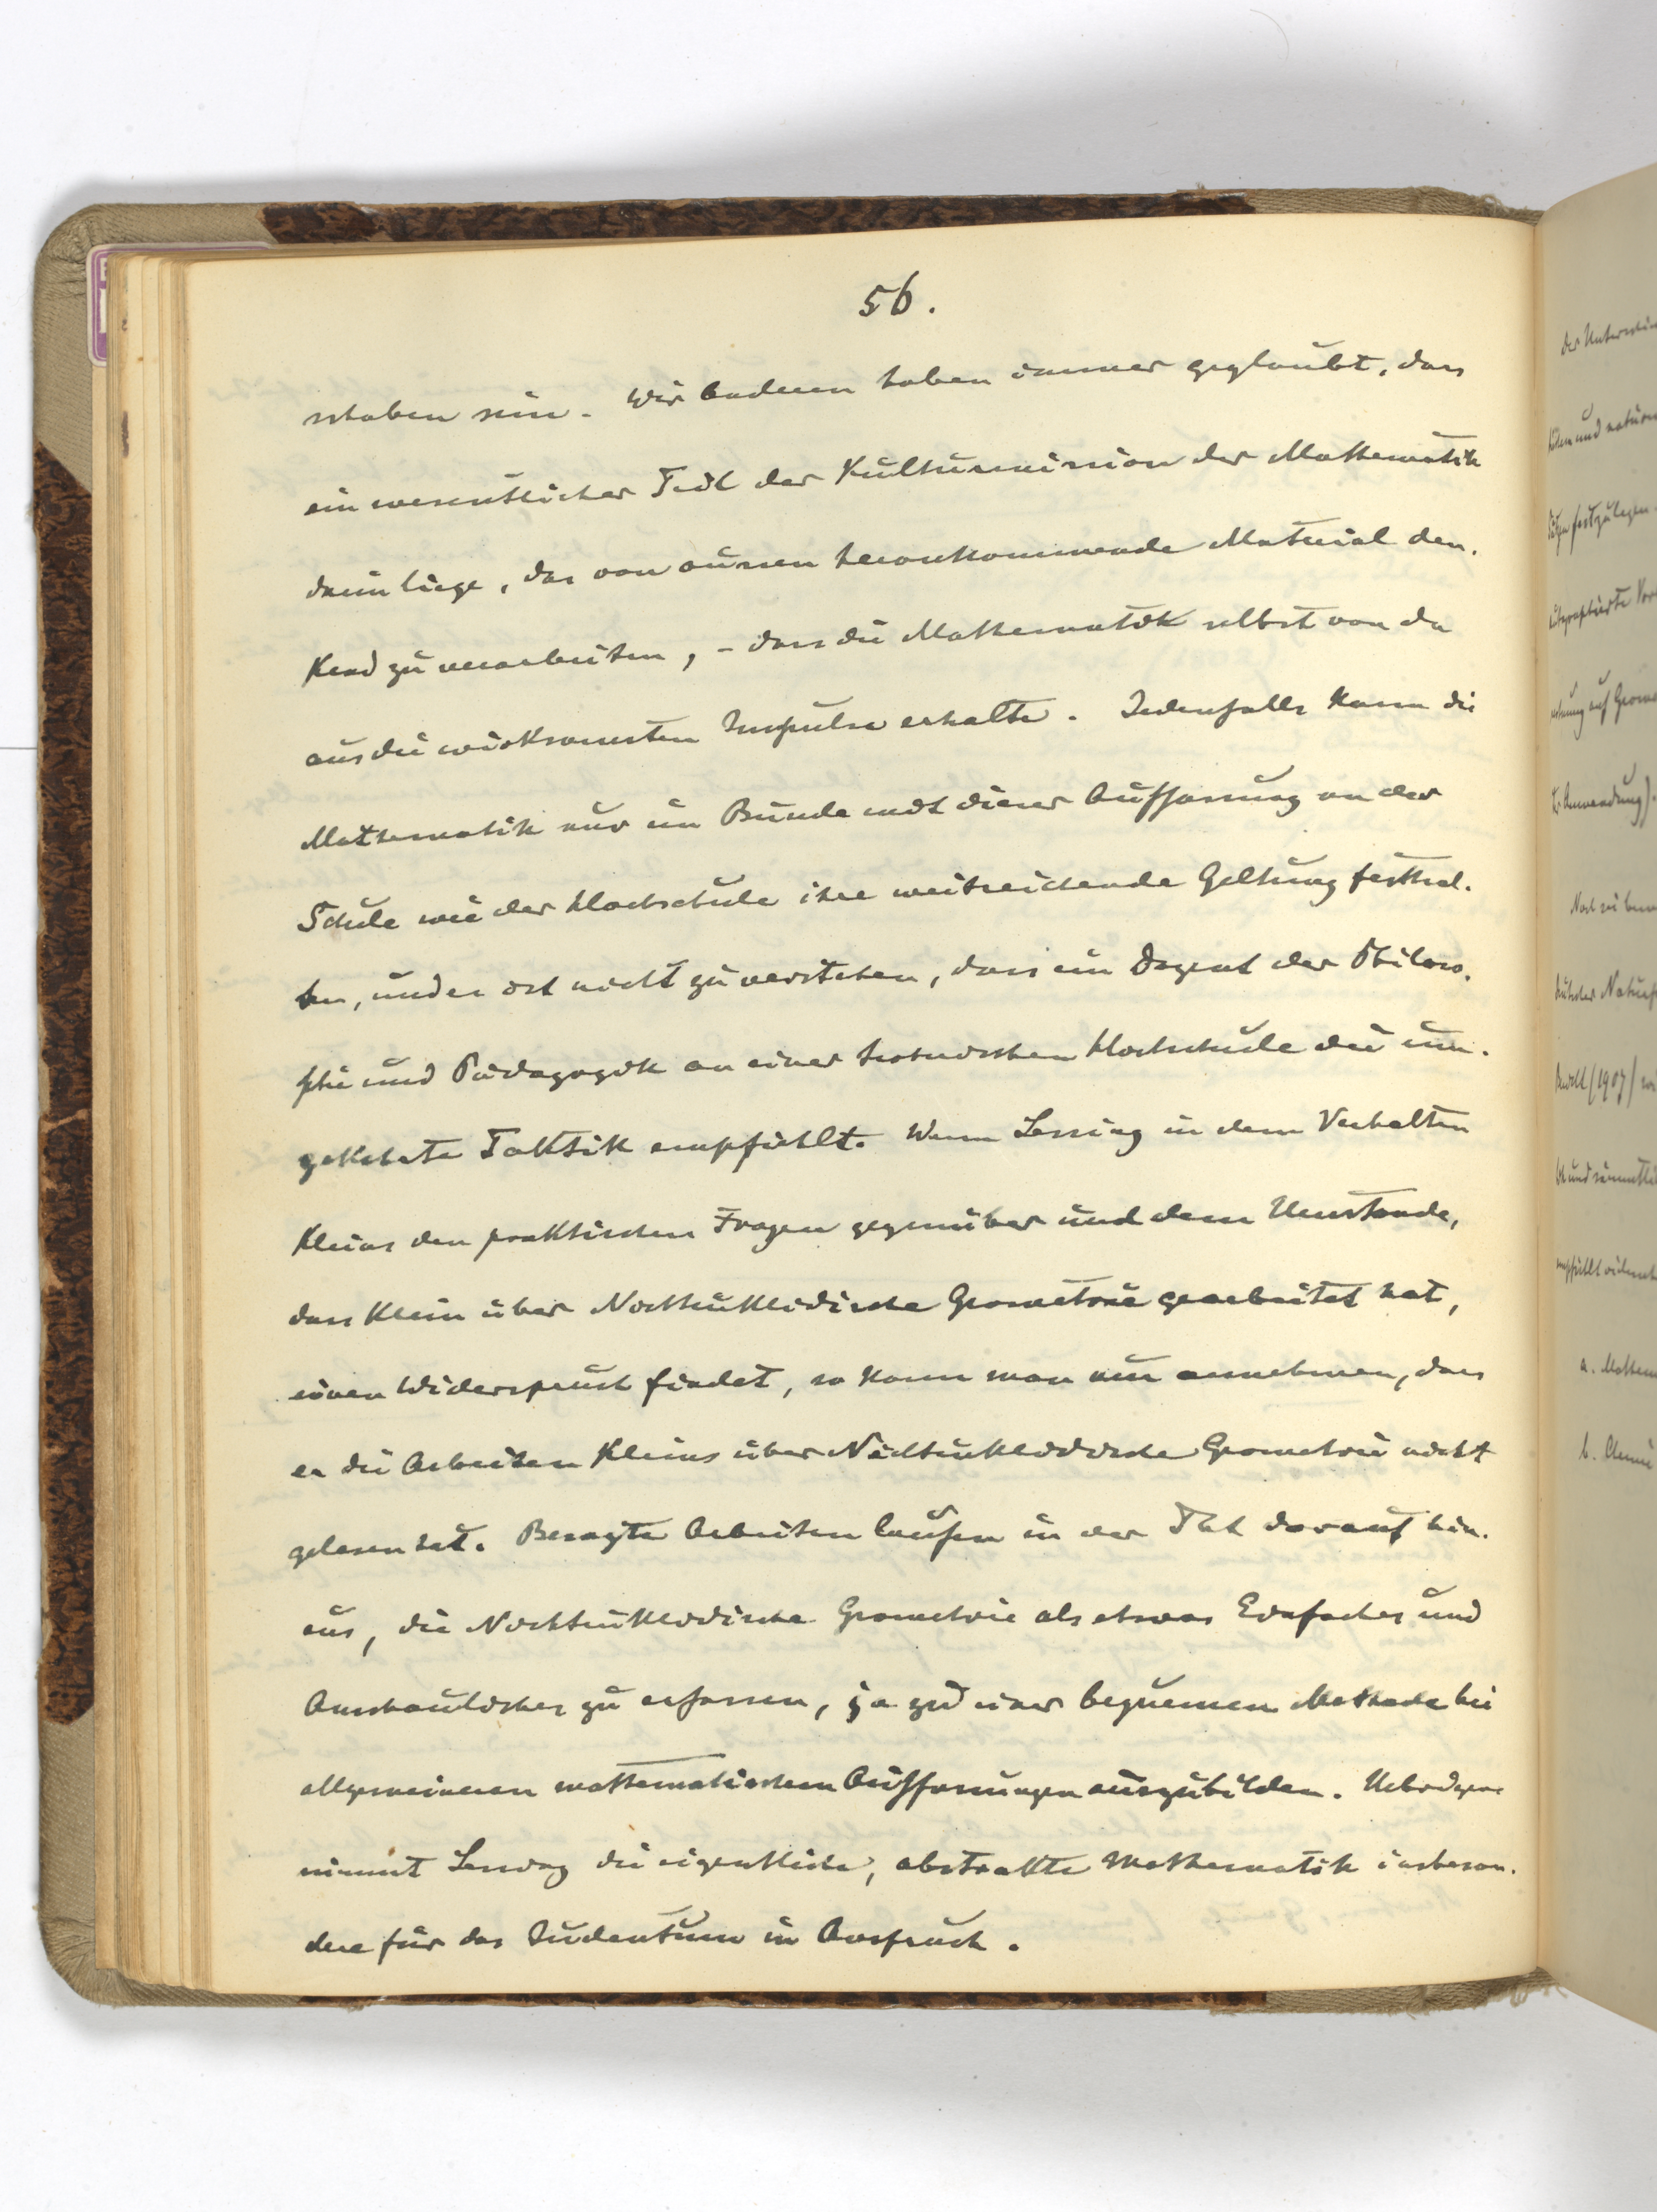 56.
schaben sein. Wir anderen haben immer geglaubt, dass
ein wesentlicher Teil der Kulturmission der Mathematik
darin liege, das von aussen heranKommende Material den-
Kend zu verarbeiten, - dass die Mathematik selbst von da
aus die wirksamsten Impulse erhalte. Jedenfalls Kann die
Mathematik nur im Bunde mit dieser Auffassung an der
Schule wie der Hochschule ihre weitreichende Geltung festhal-
ten, und es ist nicht zu verstehen, dass ein Dozent der Philoso-
phie und Pädagogik an einer technischen Hochschule die um-
geKehrte TaKtik empfiehlt. Wenn Lessing in dem Verhalten
Kleins den praKtischen Fragen gegenüber und dem Umstande,
dass Klein über NichteuKlidische Geometrie gearbeitet hat,
einen Widerspruch findet, so Kann man nur annehmen, dass
er die Arbeiten Kleins über NichteuKlidische Geometrie nicht
gelesen hat. Besagte Arbeiten laufen in der That darauf hin-
aus, die NichteuKlidische Geometrie als etwas Einfaches und
Anschauliches zu erfassen, ja zu einer bequemen Methode bei
allgemeineren mathematischen Auffassungen auszubilden. Uebrigens
nimmt Lessing die eigentliche, abstraKte Mathematik insbeson-
dere für das Judentum in Anspruch.
der
und
festzulegen.
auf
Anwendung).
(1907)
und
empfiehlt
a.
b.